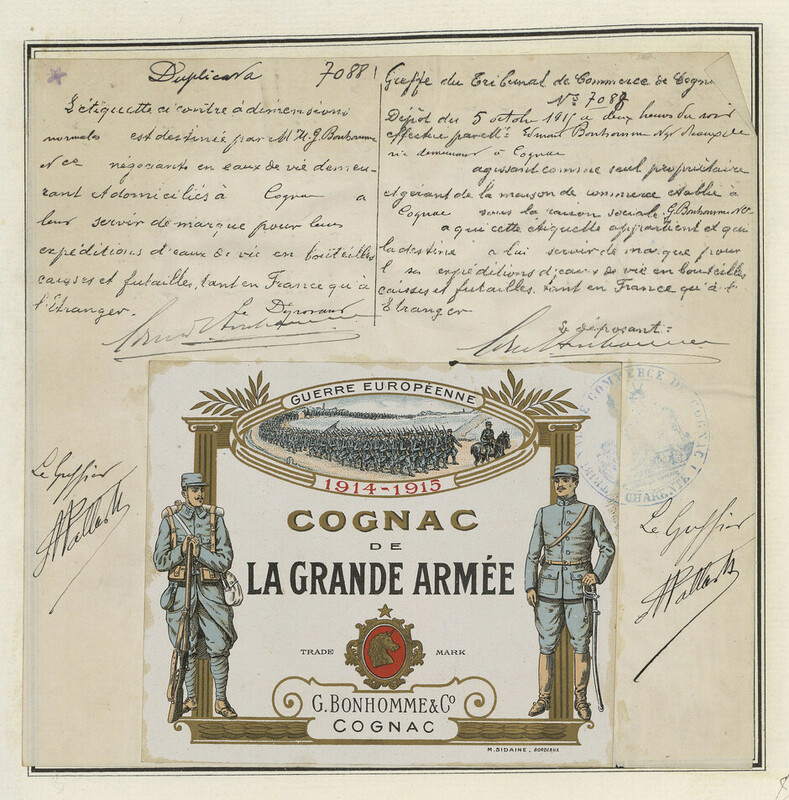 Duplicata 7088
L'étiquette ci contre à dimensions
normales est destinée par M H. G. Bonhomme
& Cie négociants en eaux de vie demeu-
rant & domiciliés à Cognac à
leur servir de marque pour leurs
expéditions d'eaux de vie en bouteilles
caisses et futailles, tant en France qu'à
l'Etranger.
Le Déposant
Greffe du Tribunal de Commerce de Cogn
No 7088
Dépôt du 5 octobre 1915 à deux heures du soir
effectué par Mr Edmond Bonhomme Ngt d'eaux de
vie demeurant à Cognac
agissant comme seul propriétaire
et gérant de la maison de commerce établie à
Cognac sous la raison sociale G. Bonhomme & Co
à qui cette étiquette appartient et qui
la destine à lui servir de marque pour
ses expéditions d'eaux de vie en bouteilles
caisses et futailles, tant en France qu'à l'
Etranger
Le déposant:
GUERRE EUROPÉENNE
1914-1915
COGNAC
DE
LA GRANDE ARMÉE
TRADE MARK
G. BONHOMME & Co
COGNAC
M. SIDAINE, BORDEAUX
Le Greffier
Le Greffier
TRIBUNAL DE COMMERCE DE COGNAC
CHARENTE